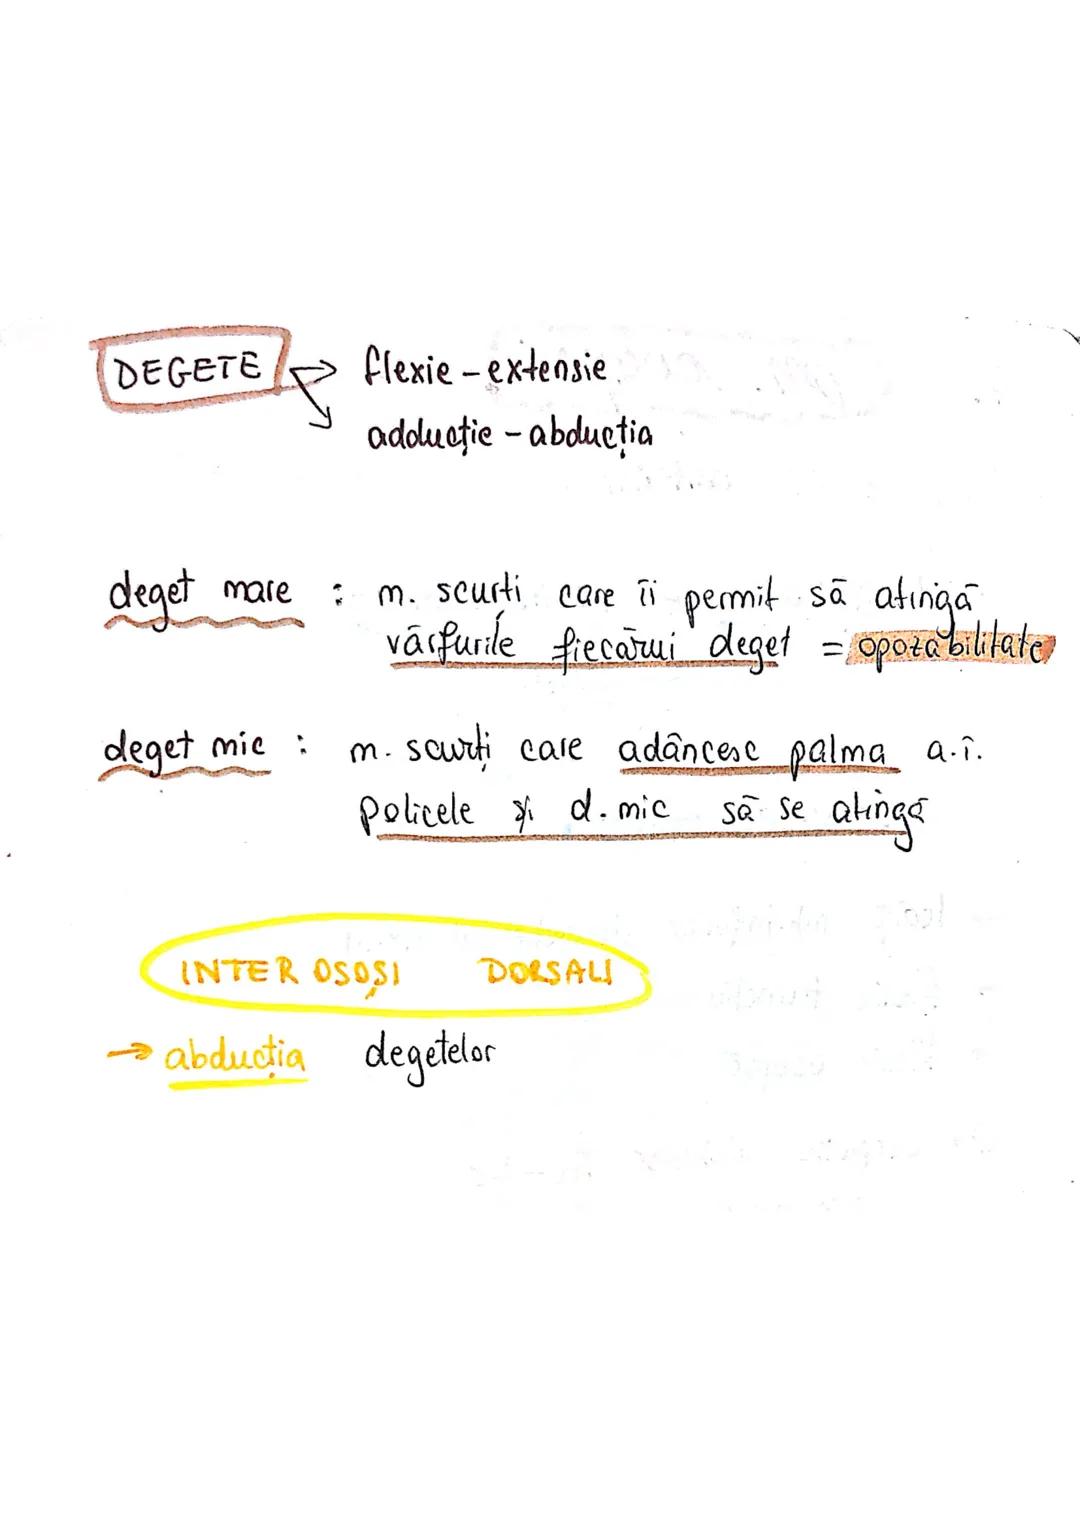 DEGETE → flexie - extensie
adducție - abducția
deget mare : m. scurți care îi permit să atingă
vârfurile fiecărui deget = opozabilitate
deget mic : m. scurți care adâncesc palma a.î.
policele și d. mic să se atingă
INTEROSOȘI DORSALI
→ abducția degetelor